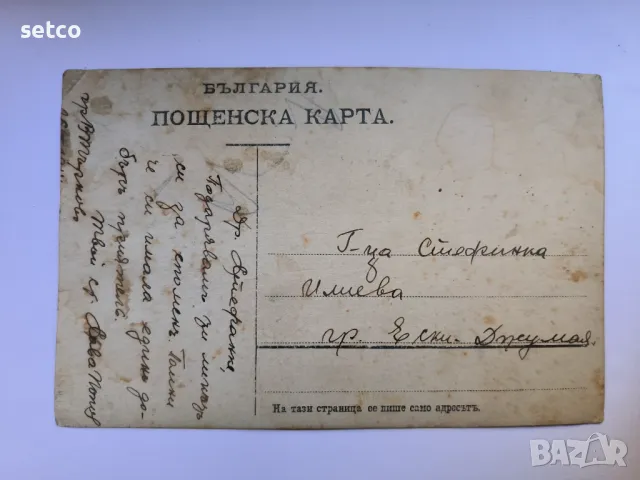 setco
БЪЛГАРИЯ.
ПОЩЕНСКА КАРТА.
Др. Стефанке,
Подарявамъ ти ликътъ
си да спомен. Помни
че си имала единъ до-
бъръ приятель.
Твой ст. Попов
гр. В. Търново
Г-ца Стефанка
Илиева
гр. Ески-Джумая.
На тази страница се пише само адресътъ.
BAZAR